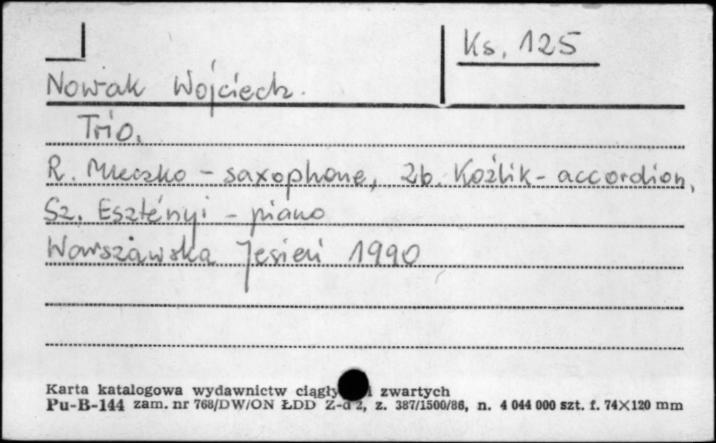 Ks. 125
Nowak Wojciech.
Trio.
R. Mleczko - saxophone, Zb. Koźlik - accordion,
Sz. Esztényi - piano
Warszawska Jesień 1990
Karta katalogowa wydawnictw ciągły i zwartych
Pu-B-144 zam. nr 768/DW/ON ŁDD Z-d 2, z. 387/1500/86, n. 4 044 000 szt. f. 74×120 mm